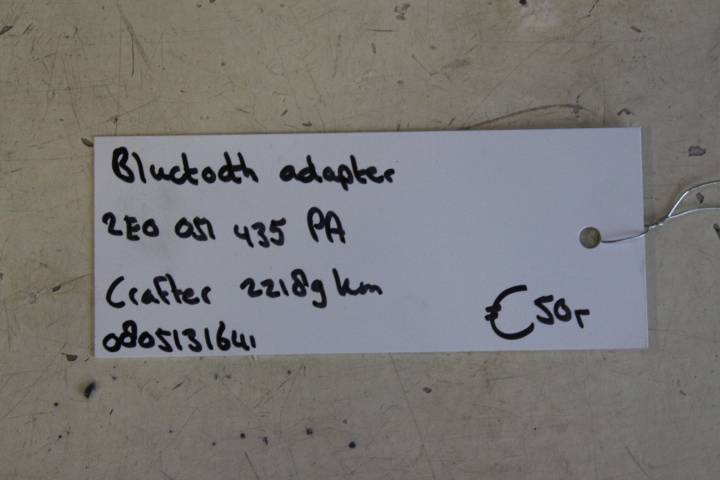 Bluetooth adapter
2E0 051 435 PA
Crafter 22189 km
0805131641
€50,-